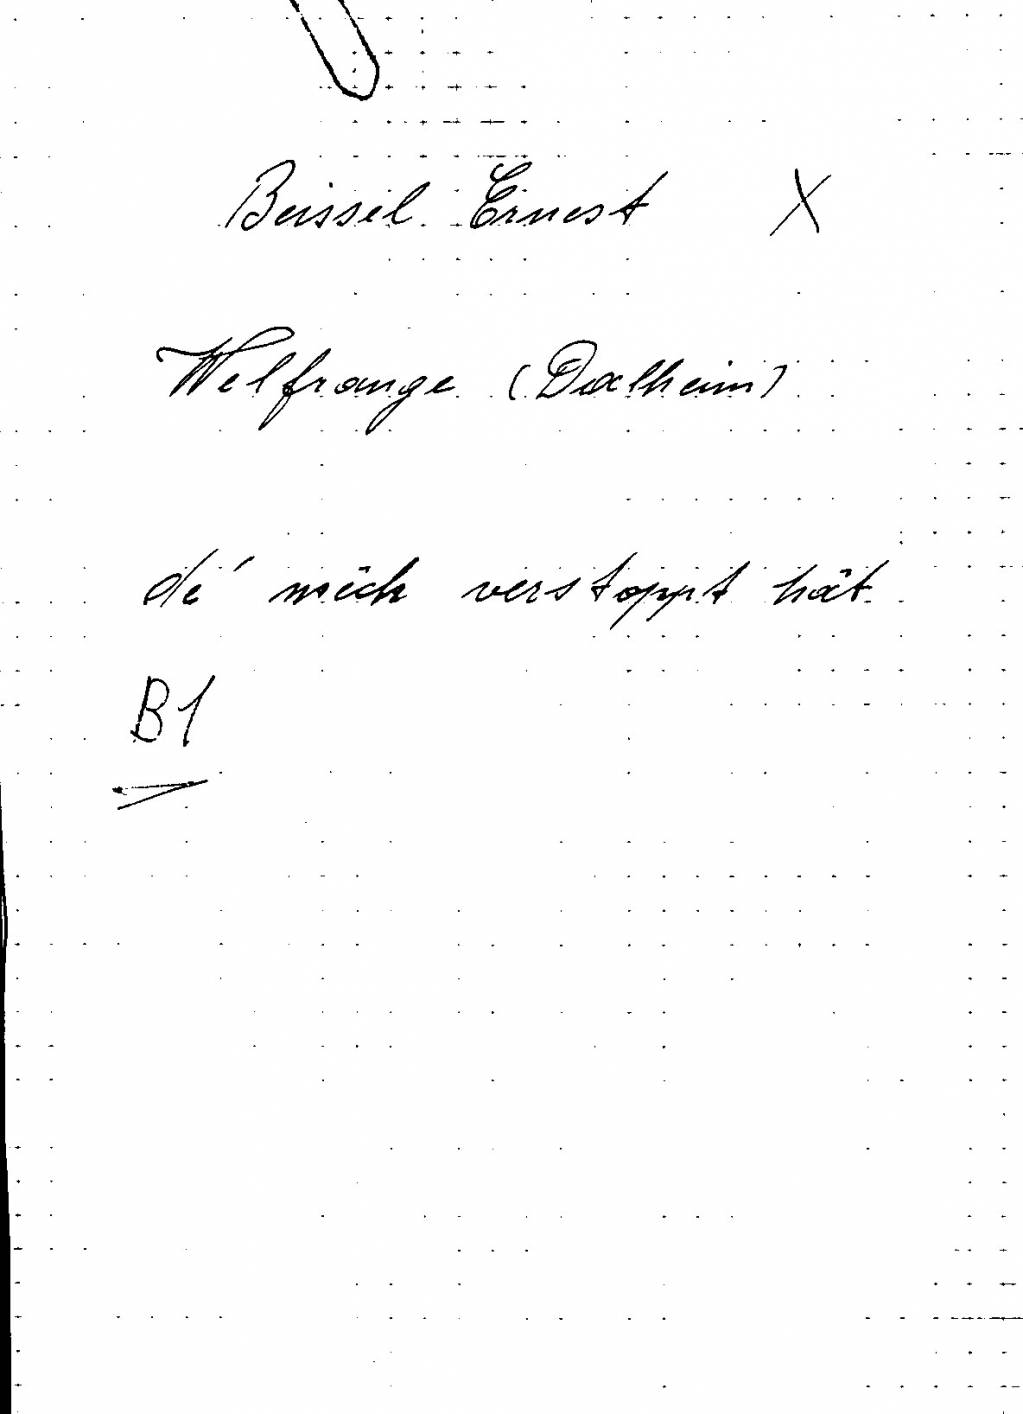 Beissel Ernest X
Welfrange (Dalheim)
dé mëch verstoppt hät
B1